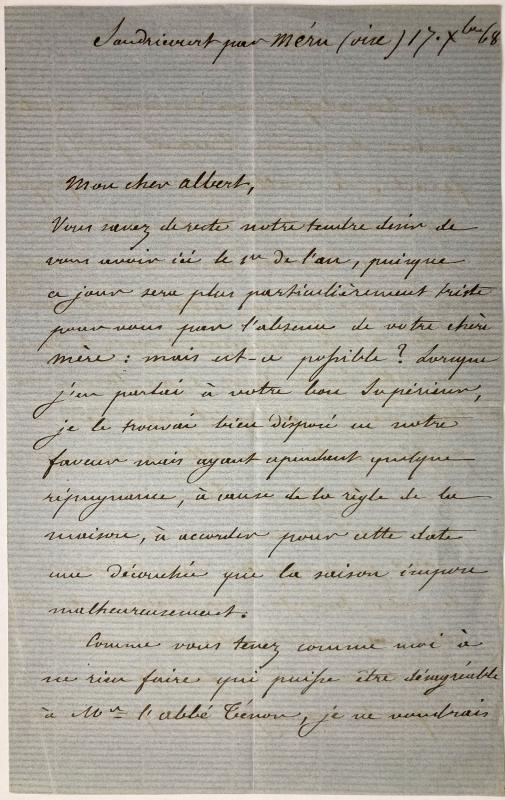 Sandricourt par Méru (oise) 17. Xbre 68
Mon cher albert,
Vous savez de reste notre tendre desir de
vous avoir ici le 1er de l'an, puisque
ce jour sera plus particulièrement triste
pour vous par l'absence de votre chère
mère : mais est-ce possible ? Lorsque
j'en parlai à votre bon Supérieur,
je le trouvai bien disposé en notre
faveur mais ayant cependant quelque
répugnance, à cause de la règle de la
maison, à accorder pour cette date
une découchée que la saison impose
malheureusement.
Comme vous tenez comme moi à
ne rien faire qui puisse être désagréable
à Mr l'abbé Ténon, je ne voudrais